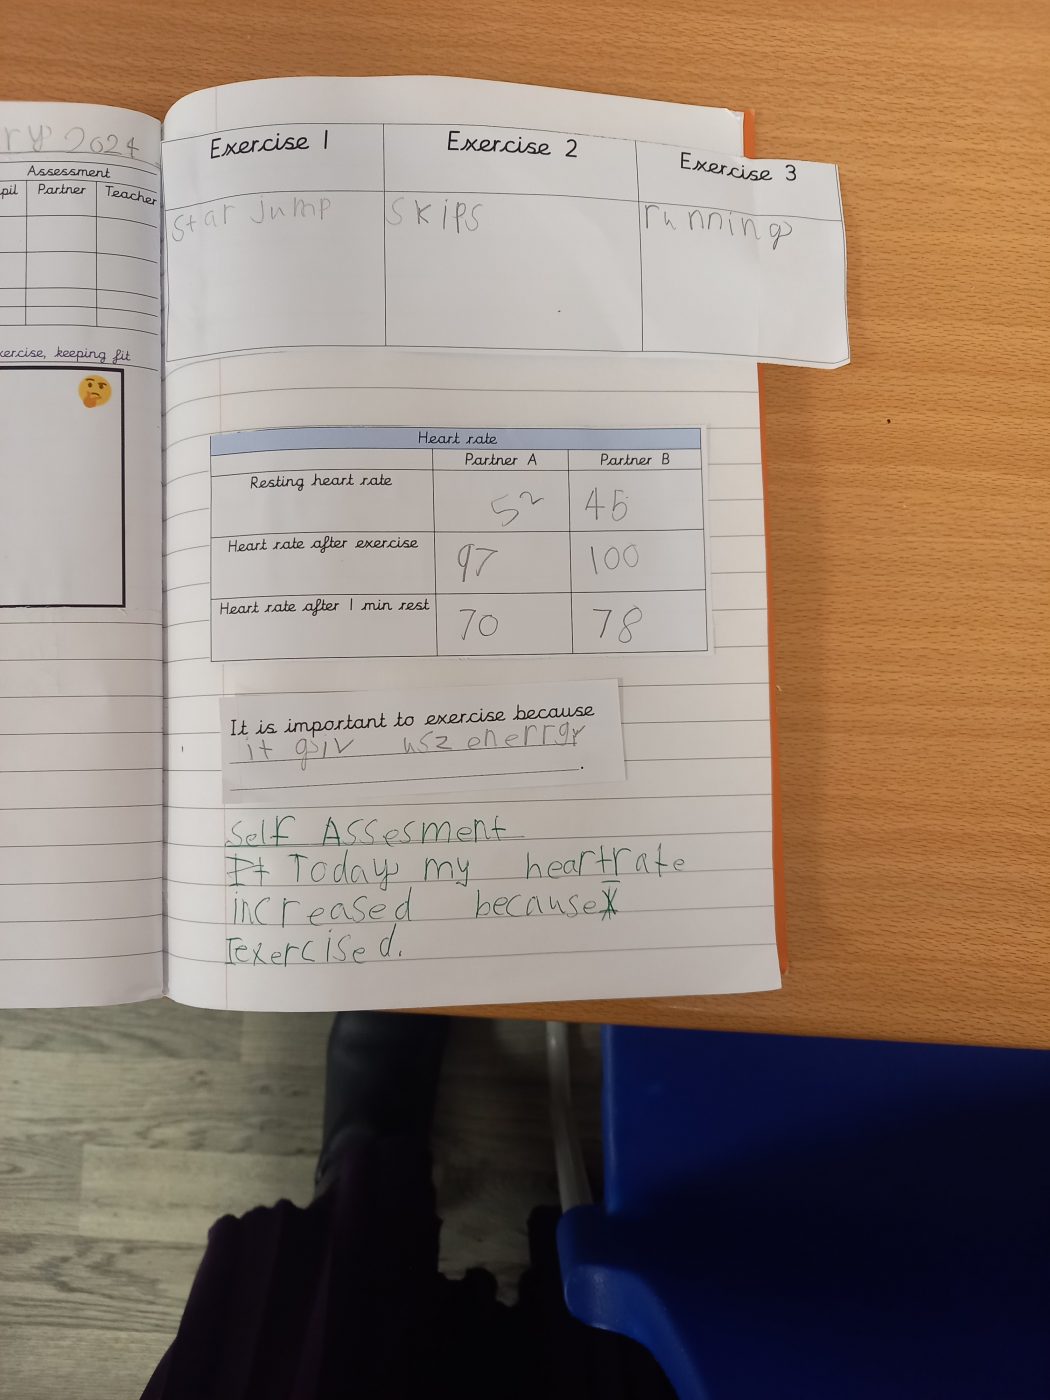 ry 2024
Assessment
pil Partner Teacher
xercise, keeping fit
Exercise 1 Exercise 2 Exercise 3
star jump skips running
Heart rate
Partner A Partner B
Resting heart rate 52 45
Heart rate after exercise 97 100
Heart rate after 1 min rest 70 78
It is important to exercise because
it gsiv usz enerrgy
.
Self Assesment
It Today my heartrate
increased because
I exercised.